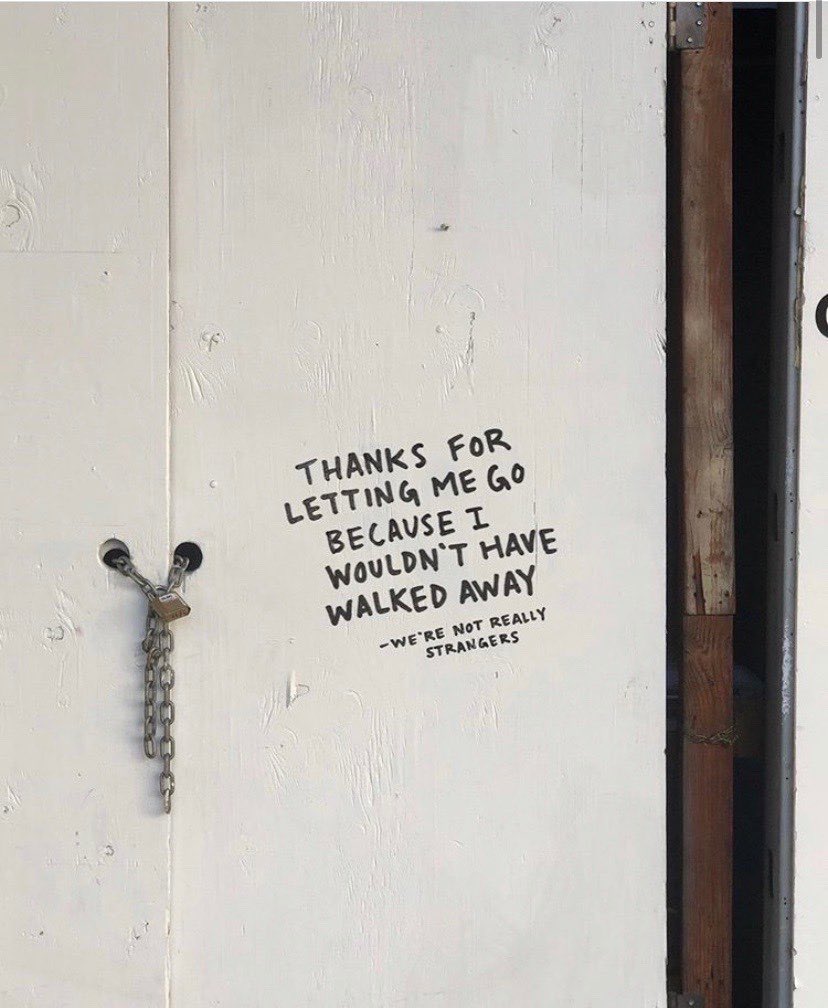 THANKS FOR
LETTING ME GO
BECAUSE I
WOULDN'T HAVE
WALKED AWAY
-WE'RE NOT REALLY
STRANGERS